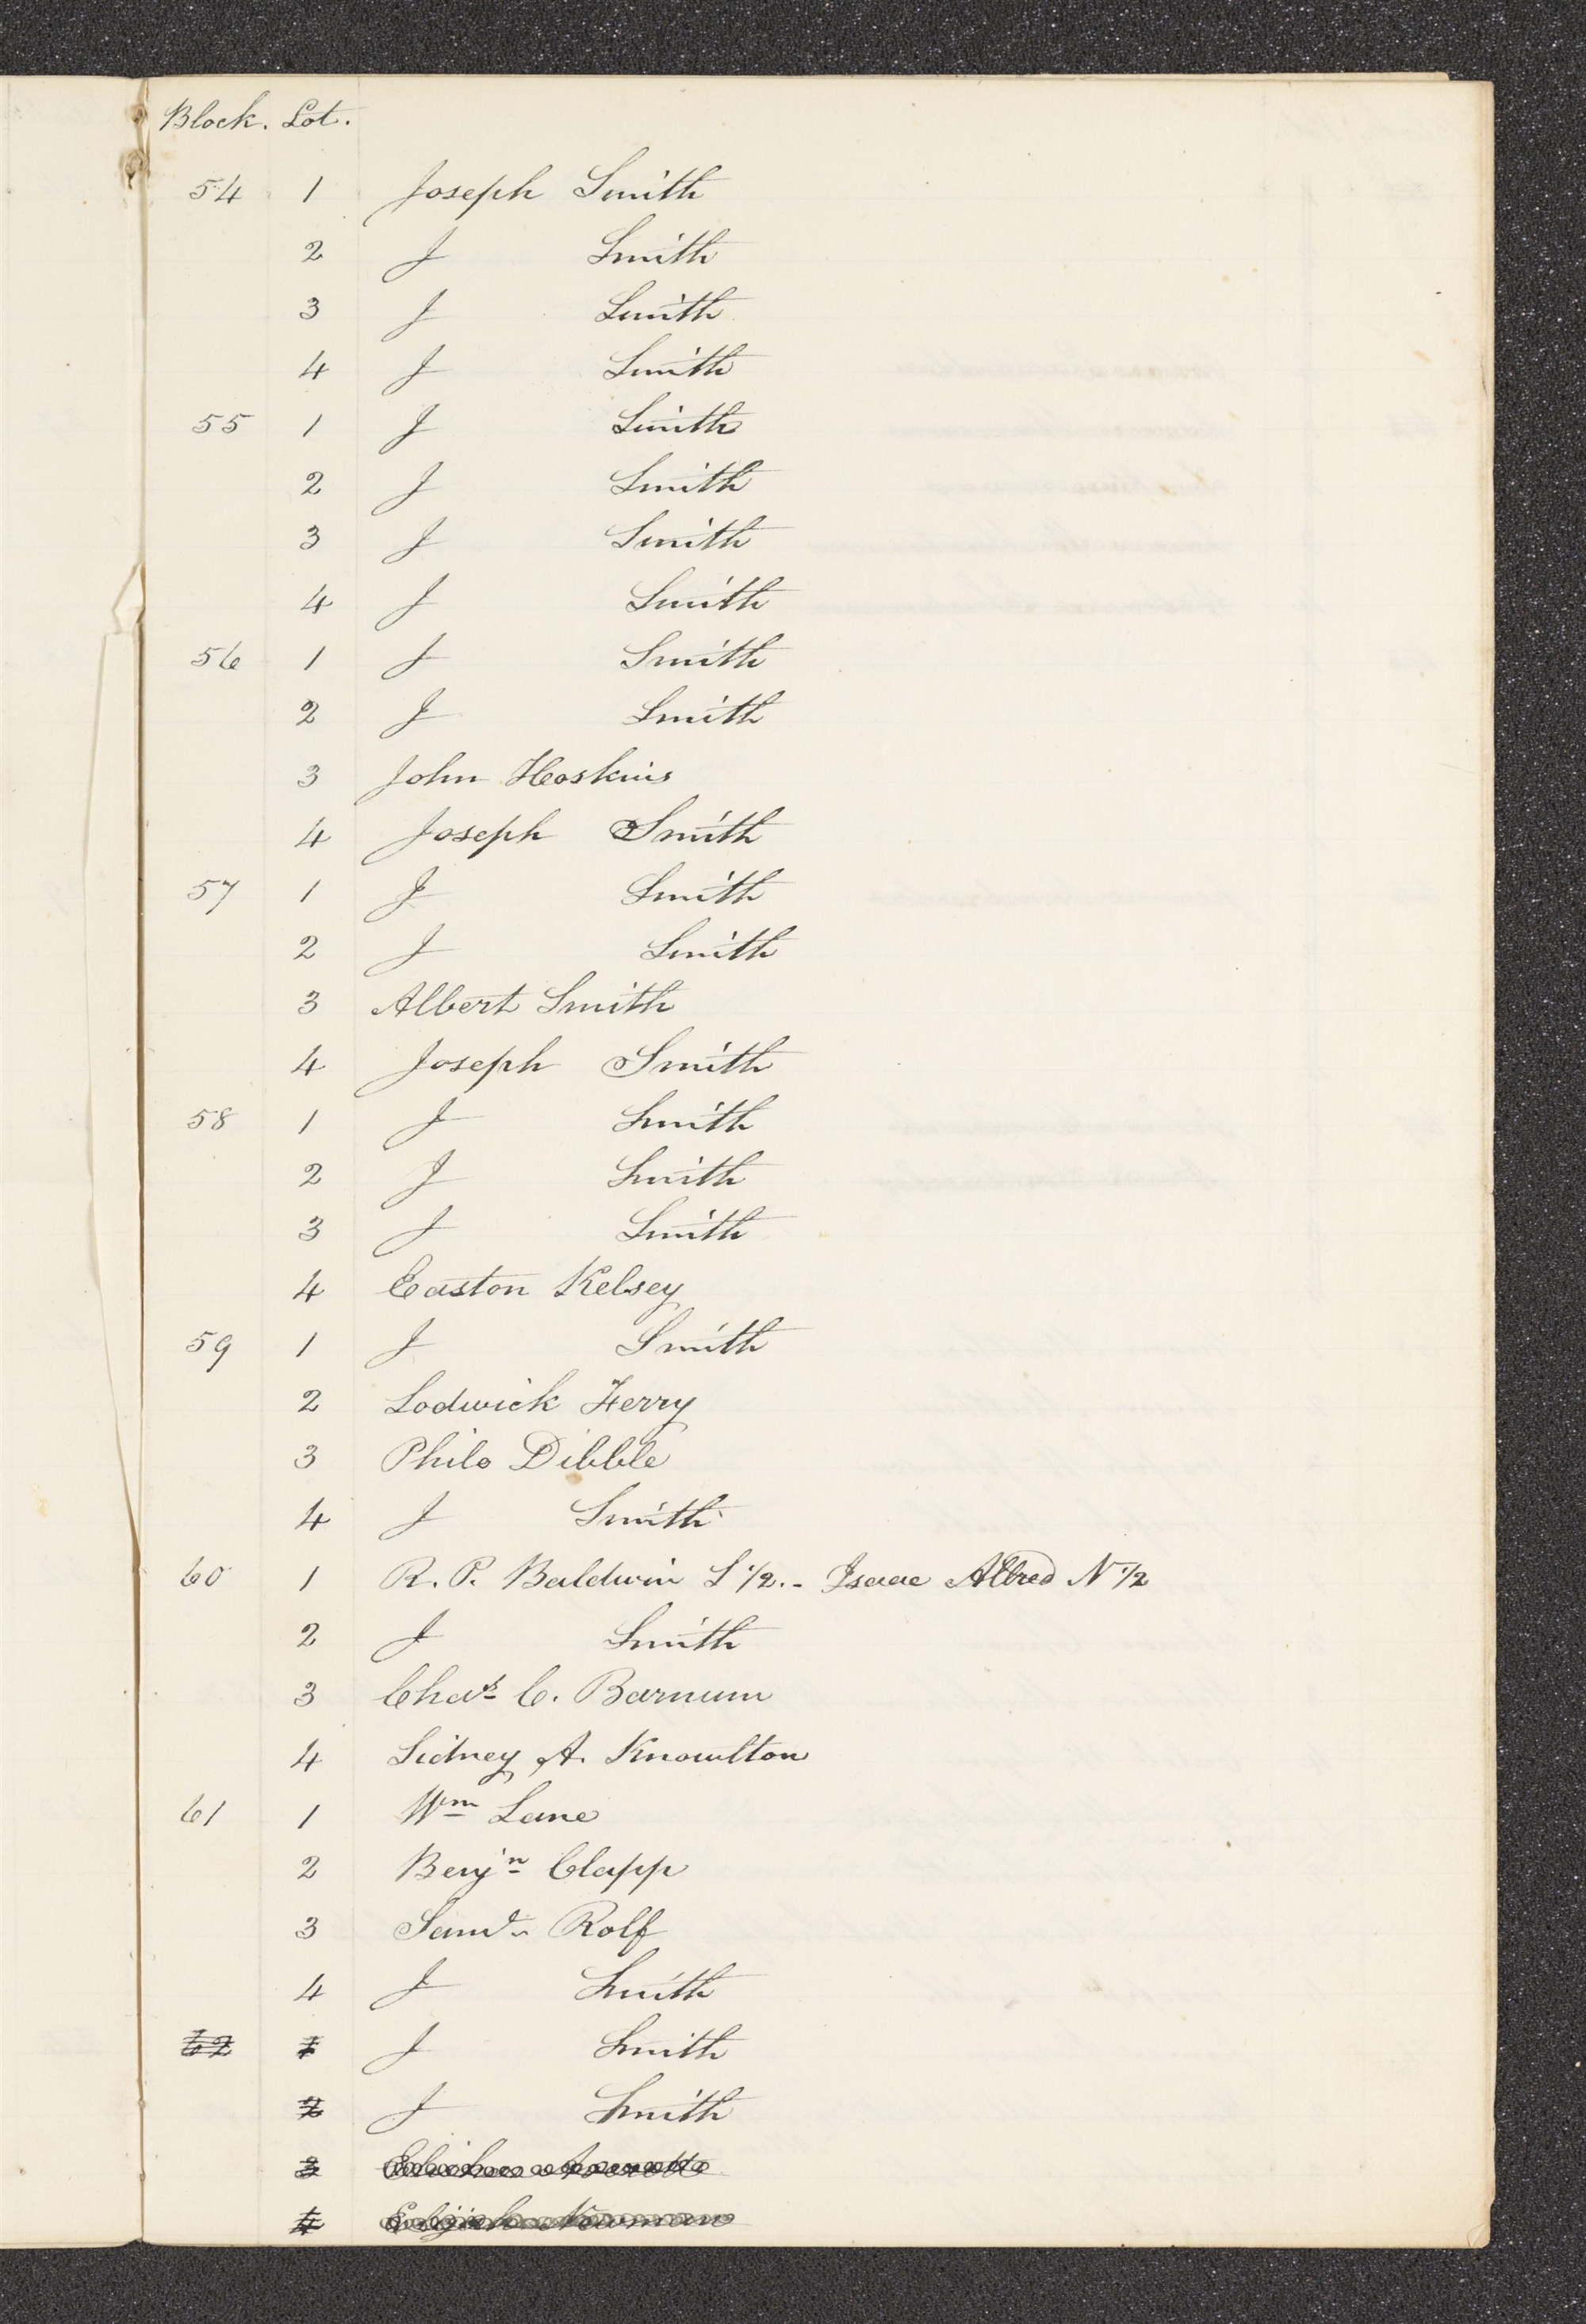 Block. Lot.
54 1 Joseph Smith
2 J Smith
3 J Smith
4 J Smith
55 1 J Smith
2 J Smith
3 J Smith
4 J Smith
56 1 J Smith
2 J Smith
3 John Hoskins
4 Joseph Smith
57 1 J Smith
2 J Smith
3 Albert Smith
4 Joseph Smith
58 1 J Smith
2 J Smith
3 J Smith
4 Easton Kelsey
59 1 J Smith
2 Lodwick Ferry
3 Philo Dibble
4 J Smith
60 1 R. P. Baldwin S 1/2. - Isaac Allred N 1/2
2 J Smith
3 Chas. C. Barnum
4 Sidney A. Knowlton
61 1 Wm Lane
2 Benjn Clapp
3 Saml. Rolf
4 J Smith
62 1 J Smith
2 J Smith
3
4 Elijah Newman